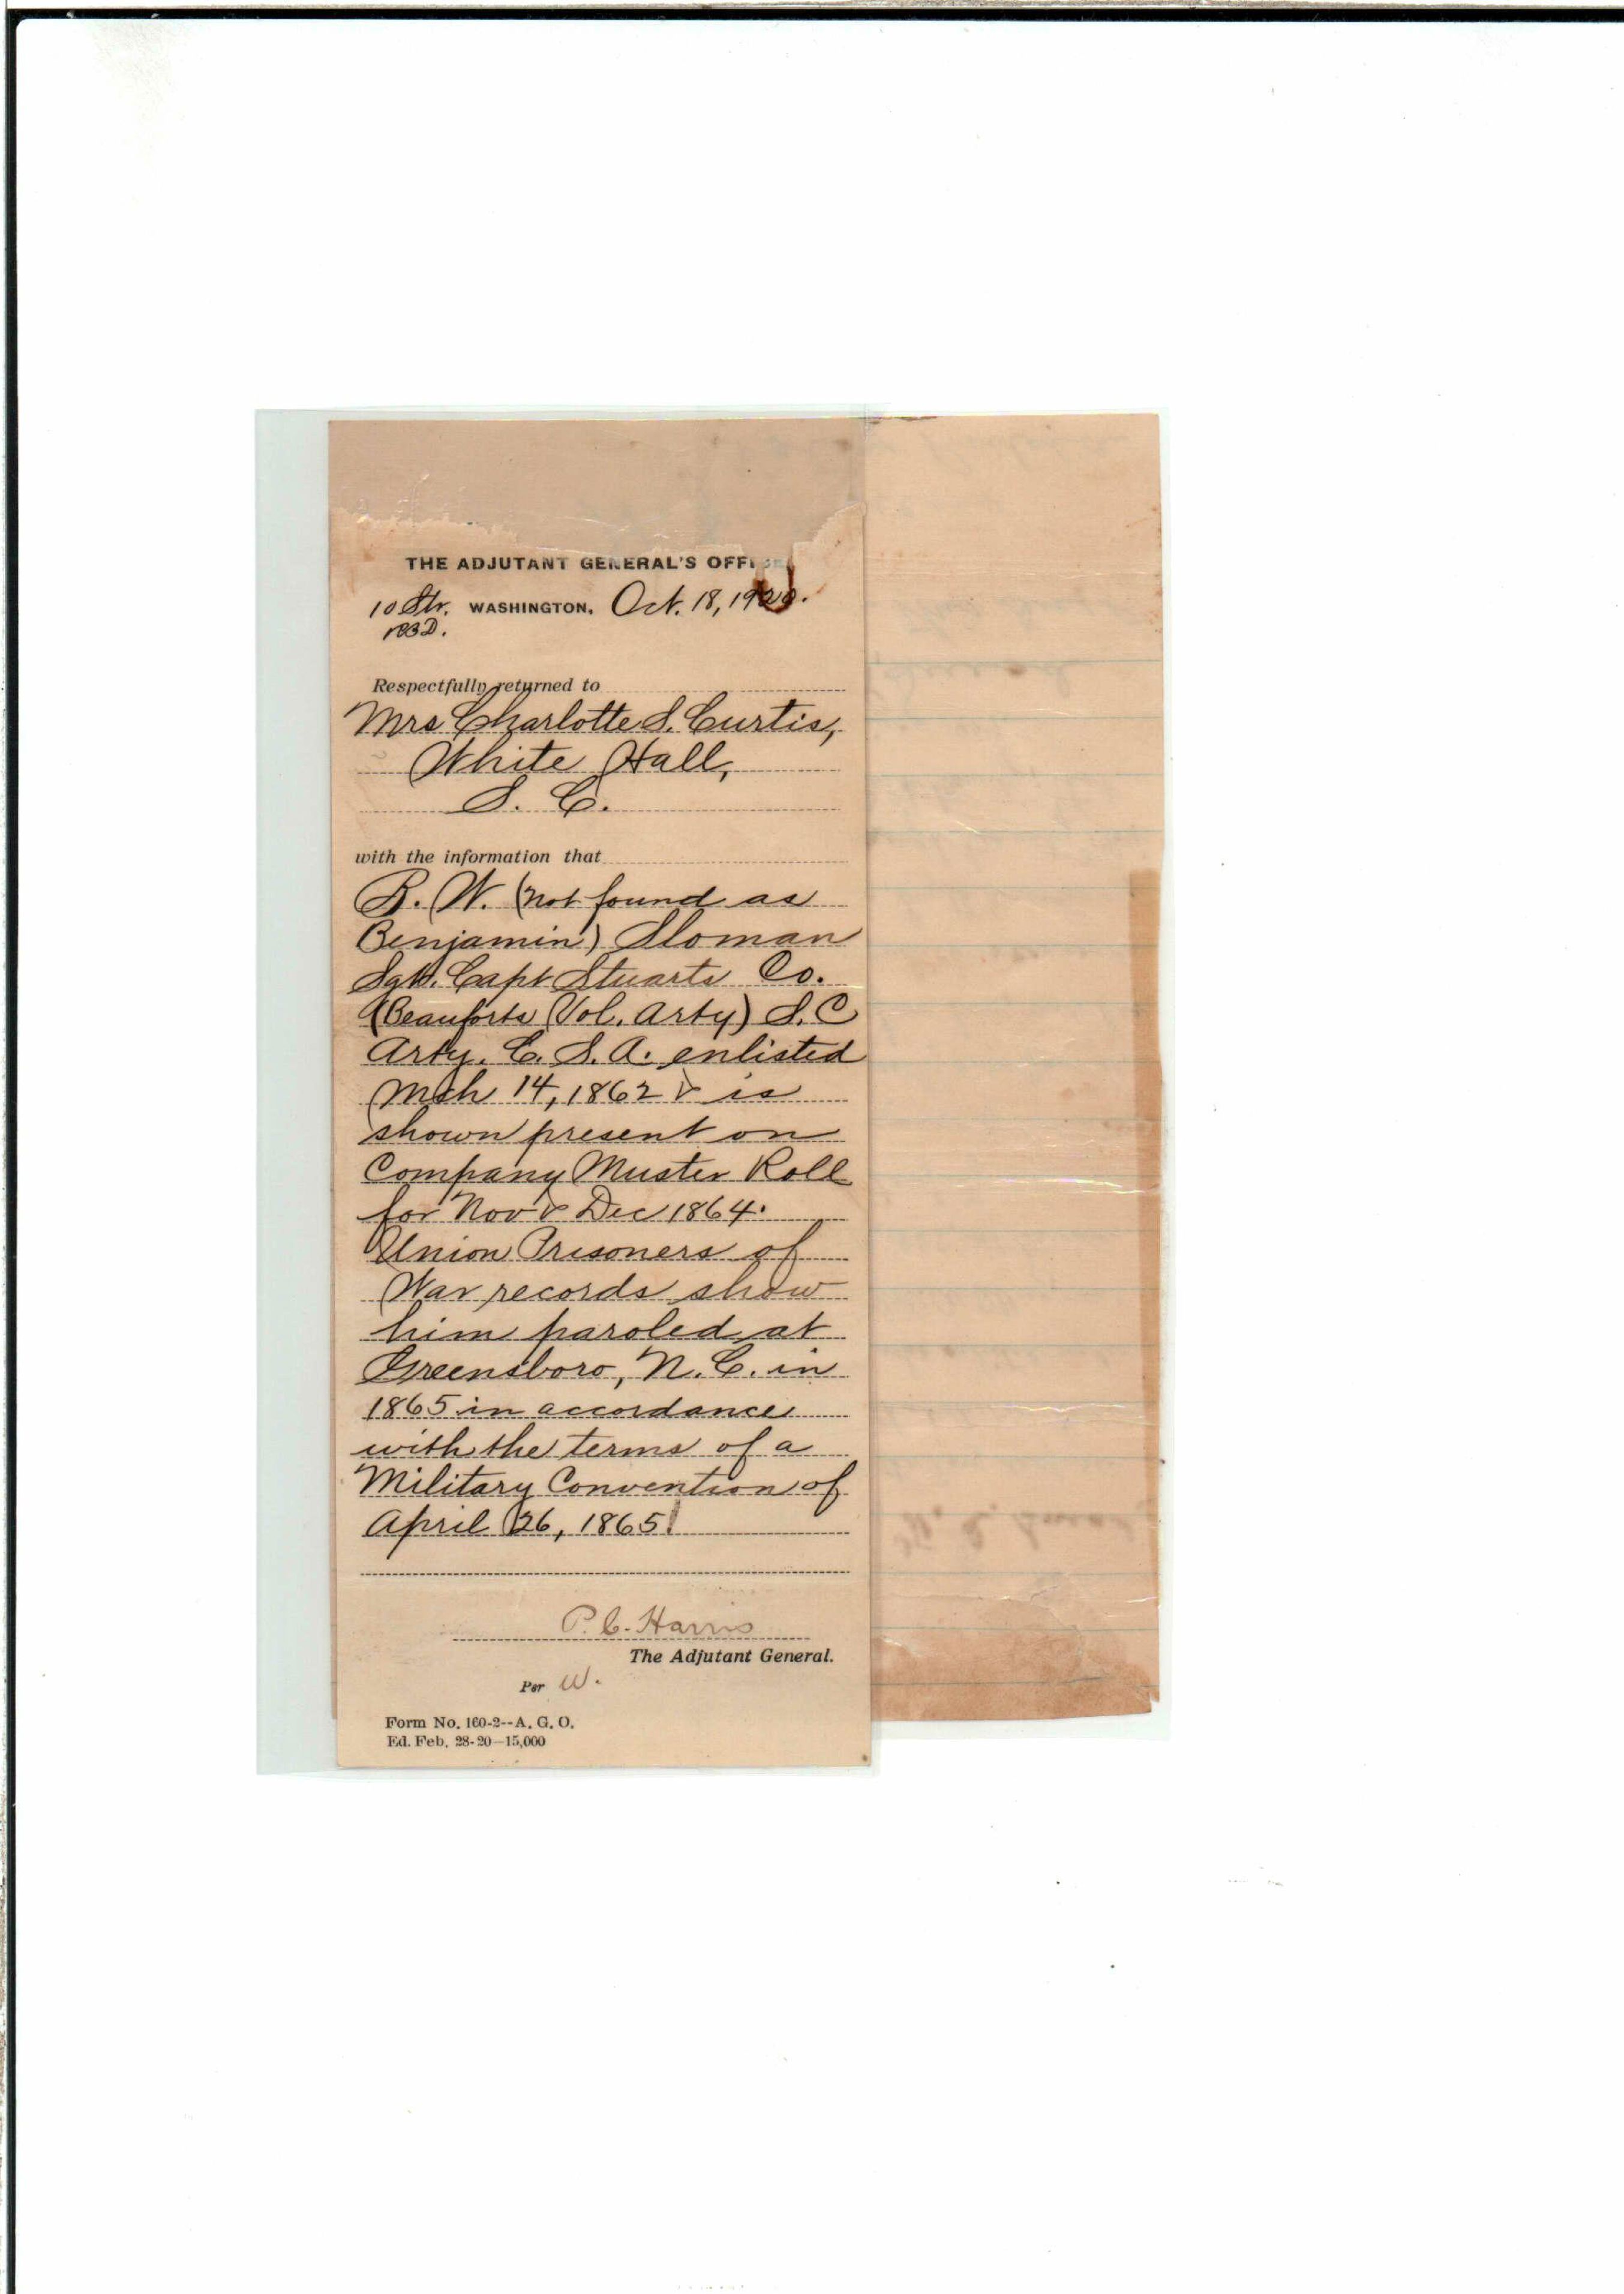 THE ADJUTANT GENERAL'S OFFICE
10 Str. WASHINGTON, Oct. 18, 1920.
Respectfully returned to
Mrs Charlotte S. Curtis,
White Hall,
S. C.
with the information that
B. W. (not found as
Benjamin) Sloman
Sgt. Capt Stuarts Co.
(Beauforts Vol. Arty) S. C
Arty. C. S. A. enlisted
Mch 14, 1862 & is
shown present on
Company Muster Roll
for Nov & Dec 1864.
Union Prisoners of
War records show
him paroled at
Greensboro, N. C. in
1865 in accordance
with the terms of a
Military Convention of
April 26, 1865
P. C. Harris
The Adjutant General.
Per W.
Form No. 160-2--A. G. O.
Ed. Feb. 28-20—15,000